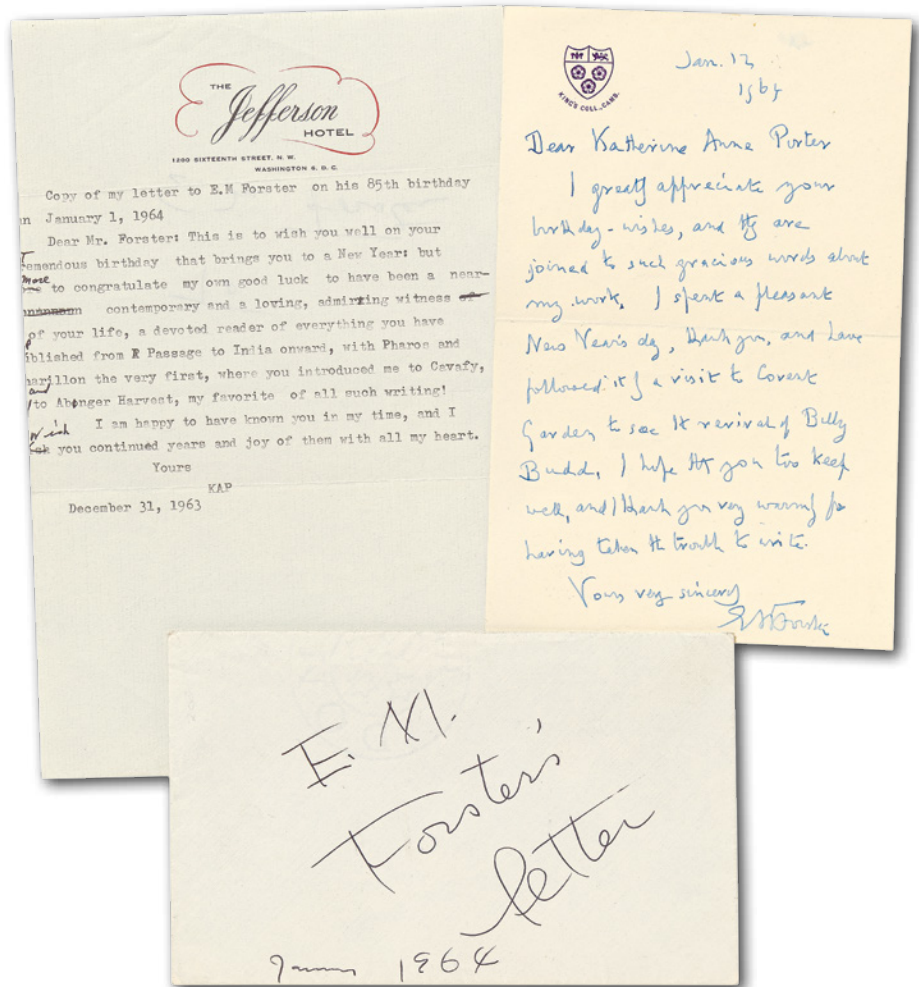 THE
Jefferson
HOTEL
1200 SIXTEENTH STREET, N. W.
WASHINGTON 6, D. C.
Copy of my letter to E.M Forster on his 85th birthday
n January 1, 1964
Dear Mr. Forster: This is to wish you well on your
Tremendous birthday that brings you to a New Year: but
more to congratulate my own good luck to have been a near-
contemporary and a loving, admirring witness of
of your life, a devoted reader of everything you have
published from A Passage to India onward, with Pharos and
harillon the very first, where you introduced me to Cavafy,
and to Abonger Harvest, my favorite of all such writing!
I am happy to have known you in my time, and I
wish you continued years and joy of them with all my heart.
Yours
KAP
December 31, 1963
KING'S COLL. CAMB.
Jan. 13
1964
Dear Katherine Anne Porter
I greatly appreciate your
birthday-wishes, and they are
joined to such gracious words about
my work. I spent a pleasant
New Year's day, thank you, and have
followed it by a visit to Covent
Garden to see the revival of Billy
Budd. I hope that you too keep
well, and I thank you very warmly for
having taken the trouble to write.
Yours very sincerely
EMForster
E. M.
Forster's
letter
January 1964